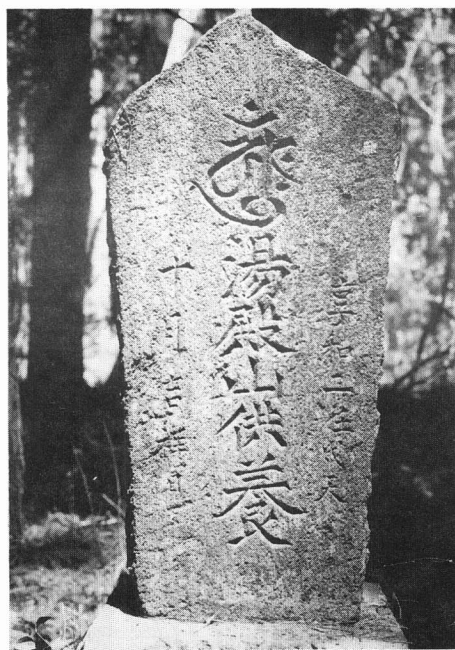 享和二壬戌天
湯殿山供養
十月吉祥日